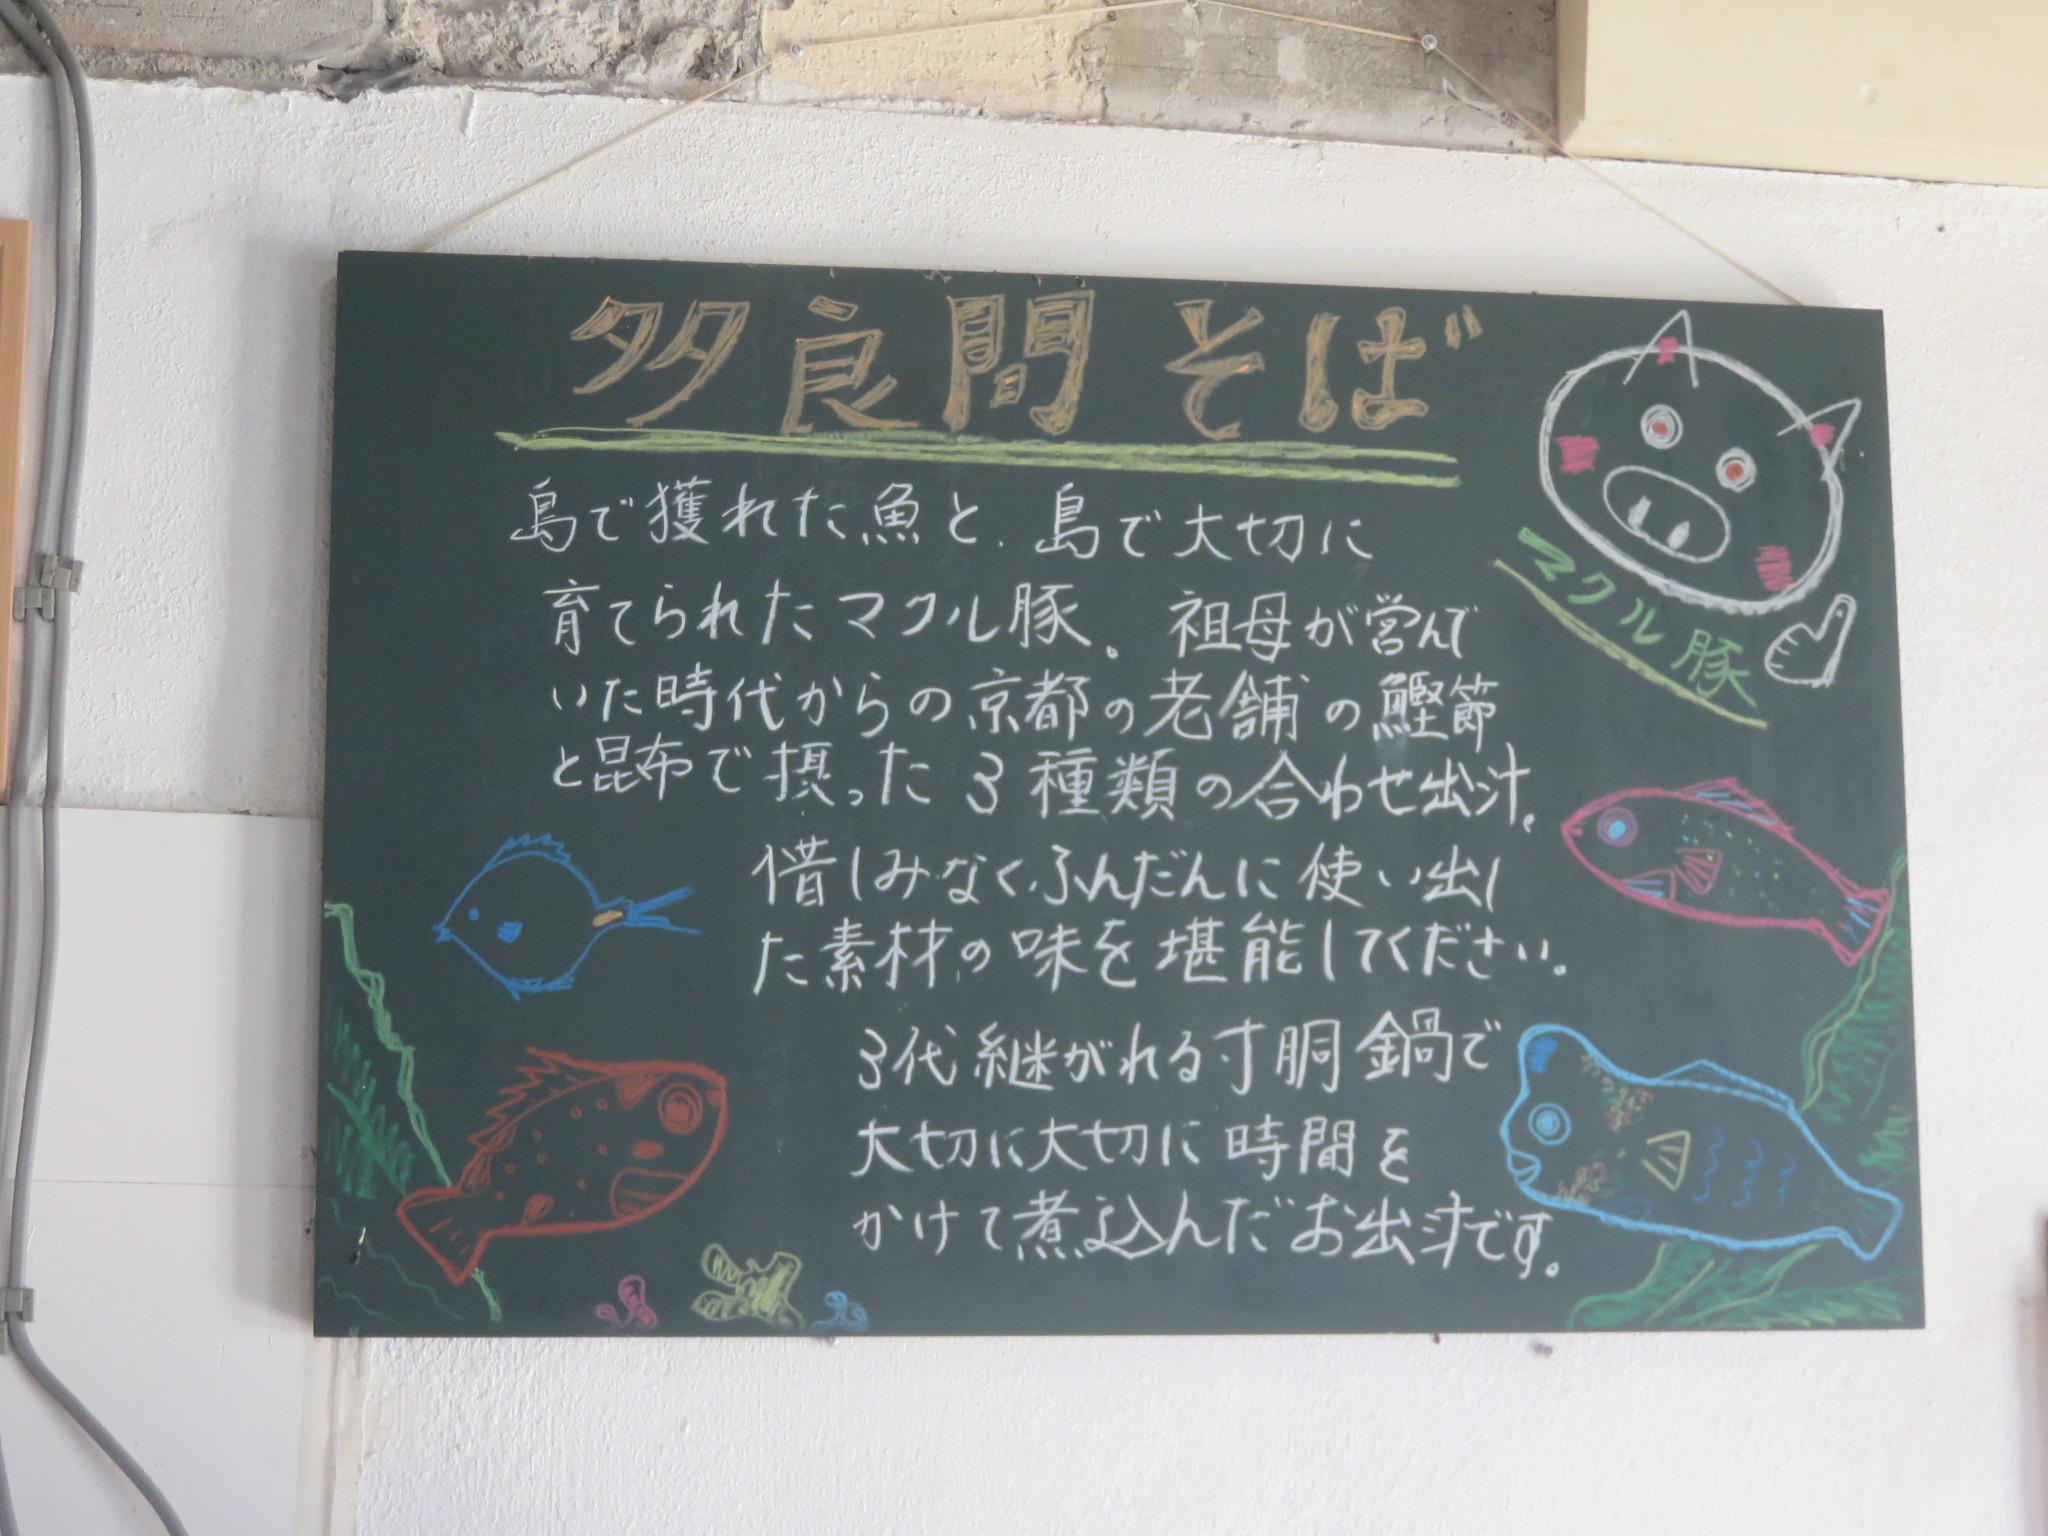 多良間そば
島で獲れた魚と、島で大切に
育てられたマクル豚。祖母が営んで
いた時代からの京都の老舗の鰹節
と昆布で摂った3種類の合わせ出汁。
借しみなくふんだんに使い出し
た素材の味を堪能してください。
3代継がれる寸胴鍋で
大切に大切に時間を
かけて煮込んだお出汁です。
マクル豚